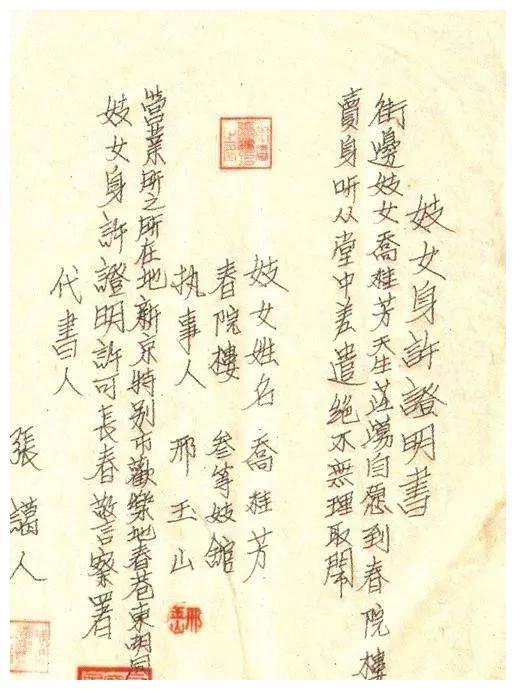 妓女身許證明書
街邊妓女喬桂芳天生淫蕩自愿到春院樓
賣身听从堂中差遣絕不無理取鬧
妓女姓名 喬桂芳
春院樓 叁等妓舘
执事人 邢玉山
邢玉山
營業所之所在地新京特别市歡樂地春巷東胡同
妓女身許證明許可長春警察署
代書人
張 人